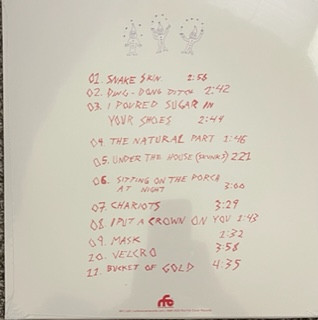 01. SNAKE SKIN 2:56
02. DING-DONG DITCH 2:42
03. I POURED SUGAR IN
YOUR SHOES 2:49
04. THE NATURAL PART 1:46
05. UNDER THE HOUSE 2:21
06. SITTING ON THE PORCH
AT NIGHT 3:00
07. CHARIOTS 3:29
08. I PUT A CROWN ON YOU 1:43
09. MASK 2:32
10. VELCRO 3:58
11. BUCKET OF GOLD 4:35
rfc